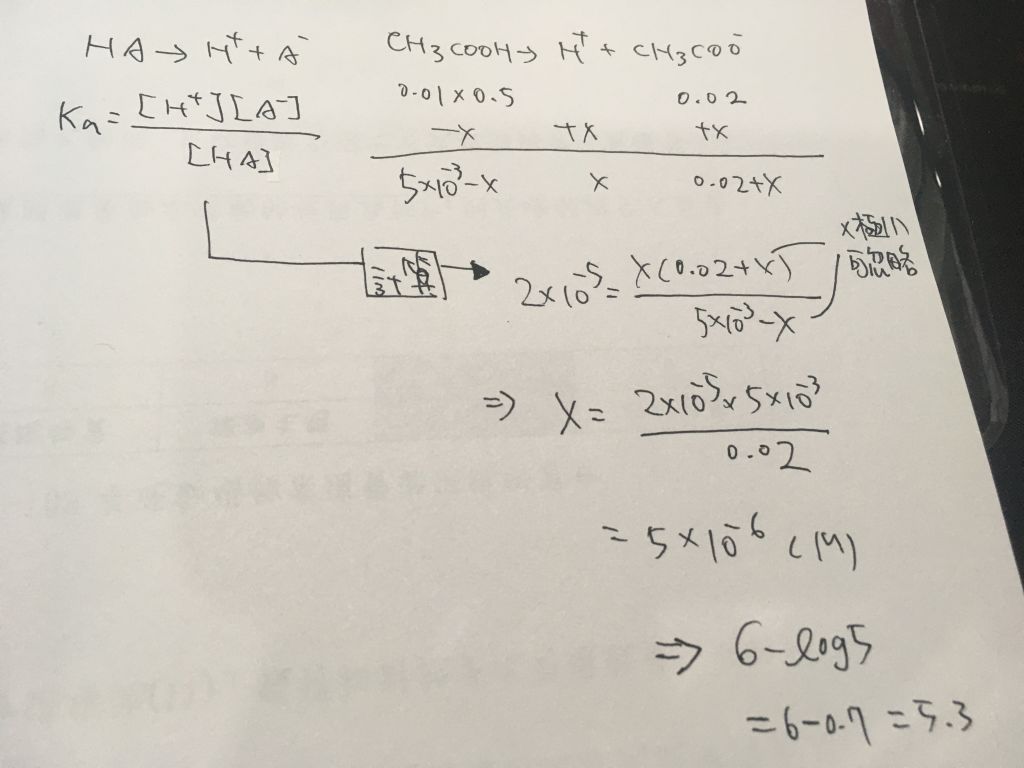 HA → H⁺ + A⁻
Ka = [H⁺][A⁻] / [HA]
CH3COOH → H⁺ + CH3COO⁻
0.01×0.5 0.02
-x +x +x
5×10⁻³-x x 0.02+x
計算
2×10⁻⁵ = x(0.02+x) / 5×10⁻³-x
x極小
可忽略
⇒ x = 2×10⁻⁵ × 5×10⁻³ / 0.02
= 5×10⁻⁶ (M)
⇒ 6-log5
= 6-0.7 = 5.3